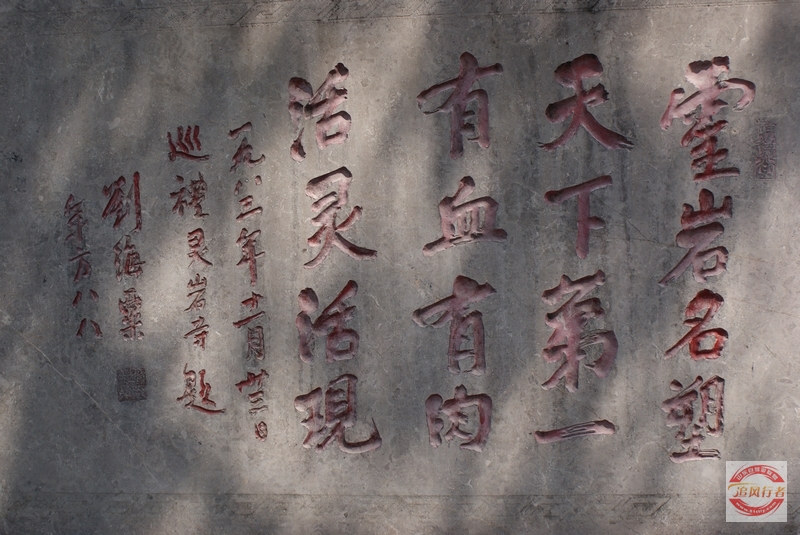 靈岩名塑
天下第一
有血有肉
活灵活現
一九八三年十一月廿三日
巡禮灵岩寺題
劉海粟
年方八八
追风行者